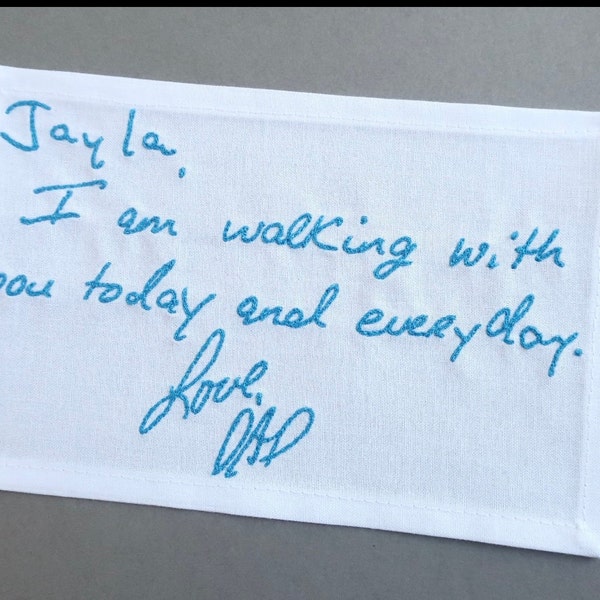 Jayla,
I am walking with
you today and everyday.
Love,
DAD